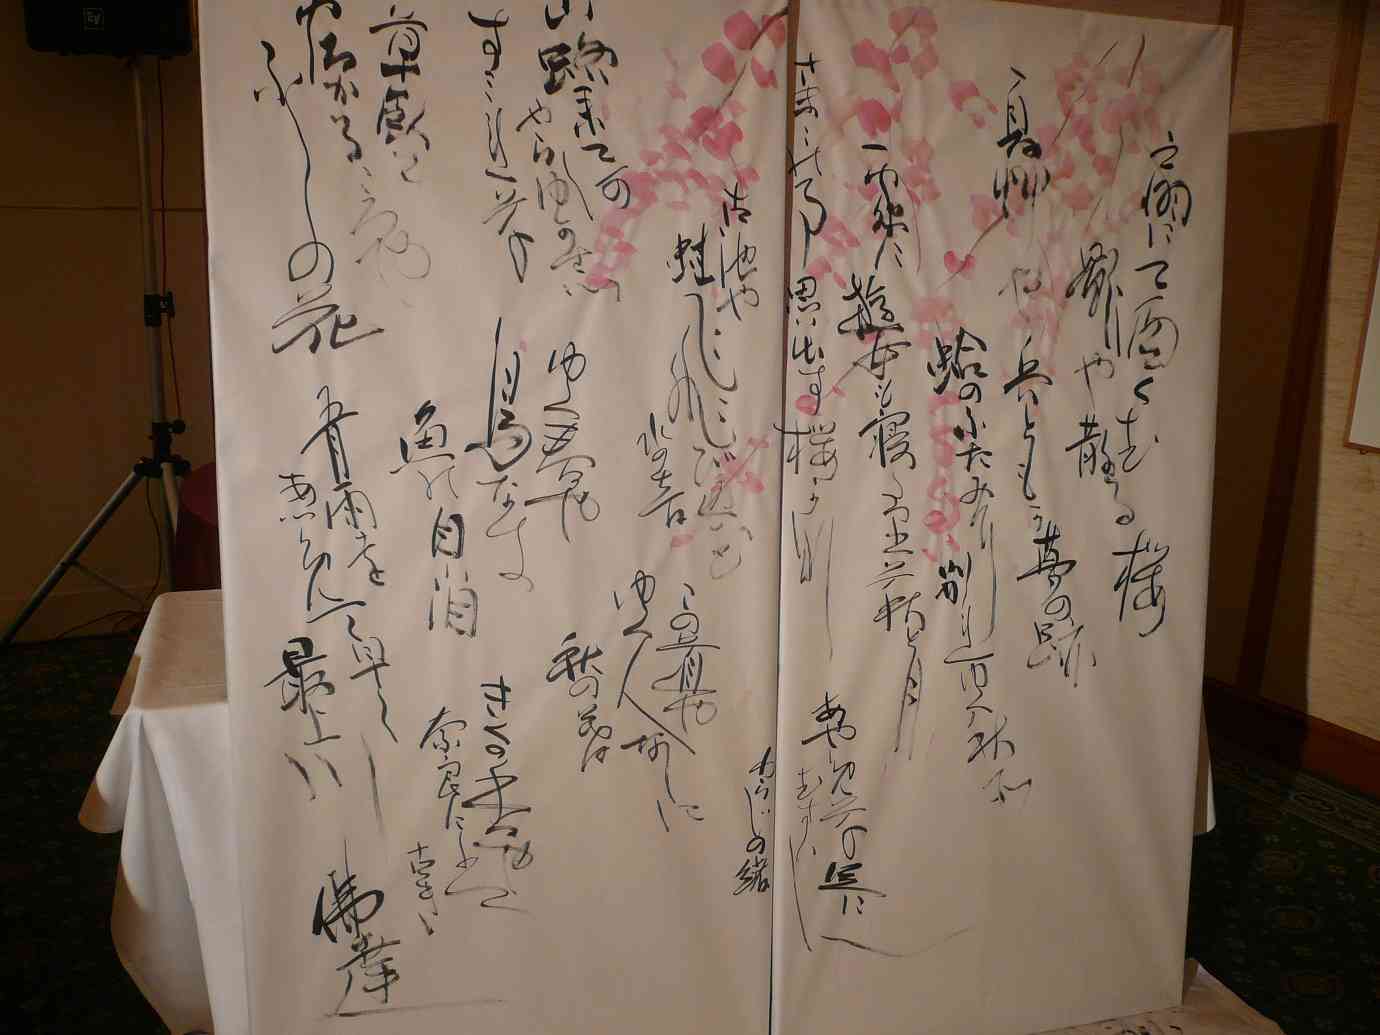 扇にて酒くむ
影や散る桜
夏草や兵どもが夢の跡
蛤のふたみに別れ行く秋ぞ
一つ家に遊女も寝たり萩と月
さま〴〵の事思ひ出す桜かな
あやめ草足に
むすばん
わらじの緒
古池や
蛙飛びこむ
水の音
この道や
ゆく人なしに
秋の暮
山路来て何
やらゆかし
すみれ草
ゆく春や
鳥なき
魚の目は泪
きくの香や
奈良には
古き
佛達
草臥て
宿かる頃や
ふじの花
五月雨を
あつめて早し
最上川